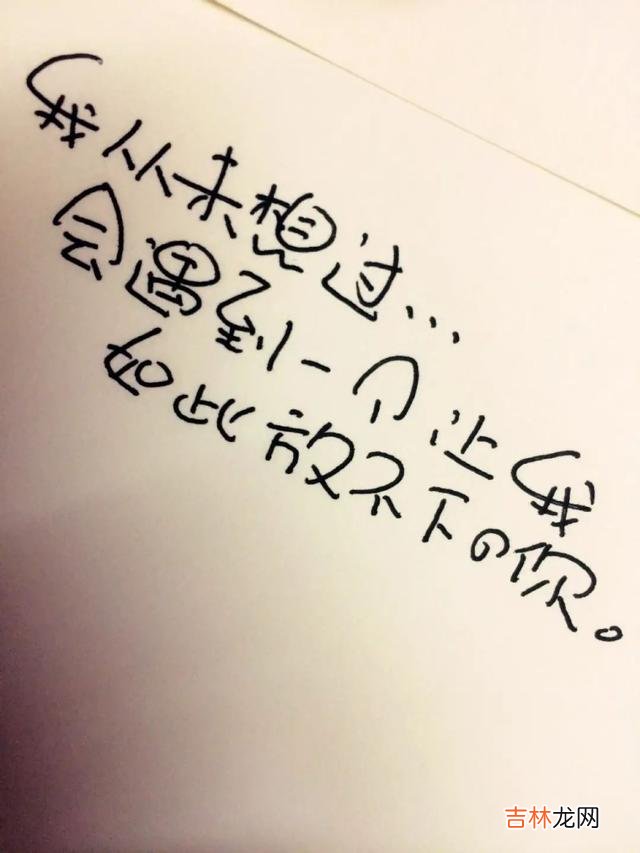 我从未想过...
会遇到一个让我
如此放不下の你。
吉林龙网